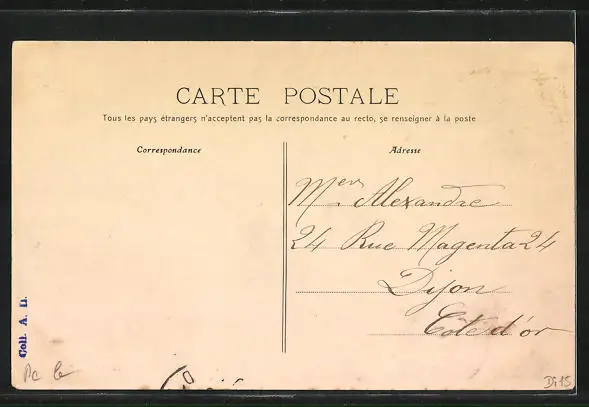 CARTE POSTALE
Tous les pays étrangers n'acceptent pas la correspondance au recto, se renseigner à la poste
Correspondance
Adresse
Alexandre
24 Rue Magenta 24
Dijon
Côte d'or
Coll. A. D.
Di15